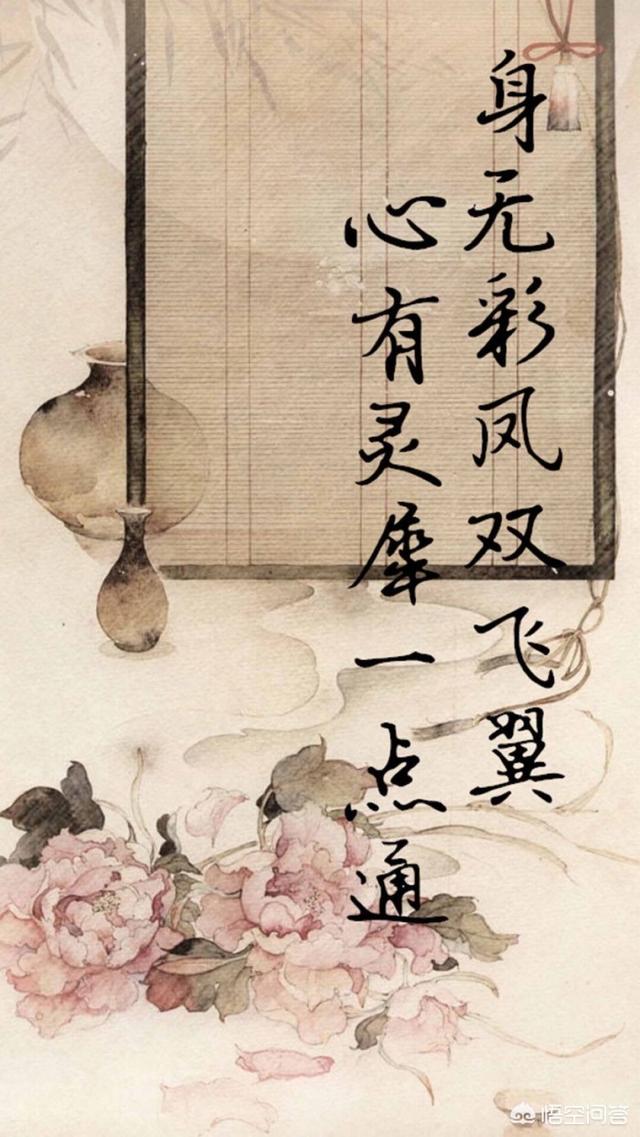 身无彩凤双飞翼
心有灵犀一点通
悟空问答